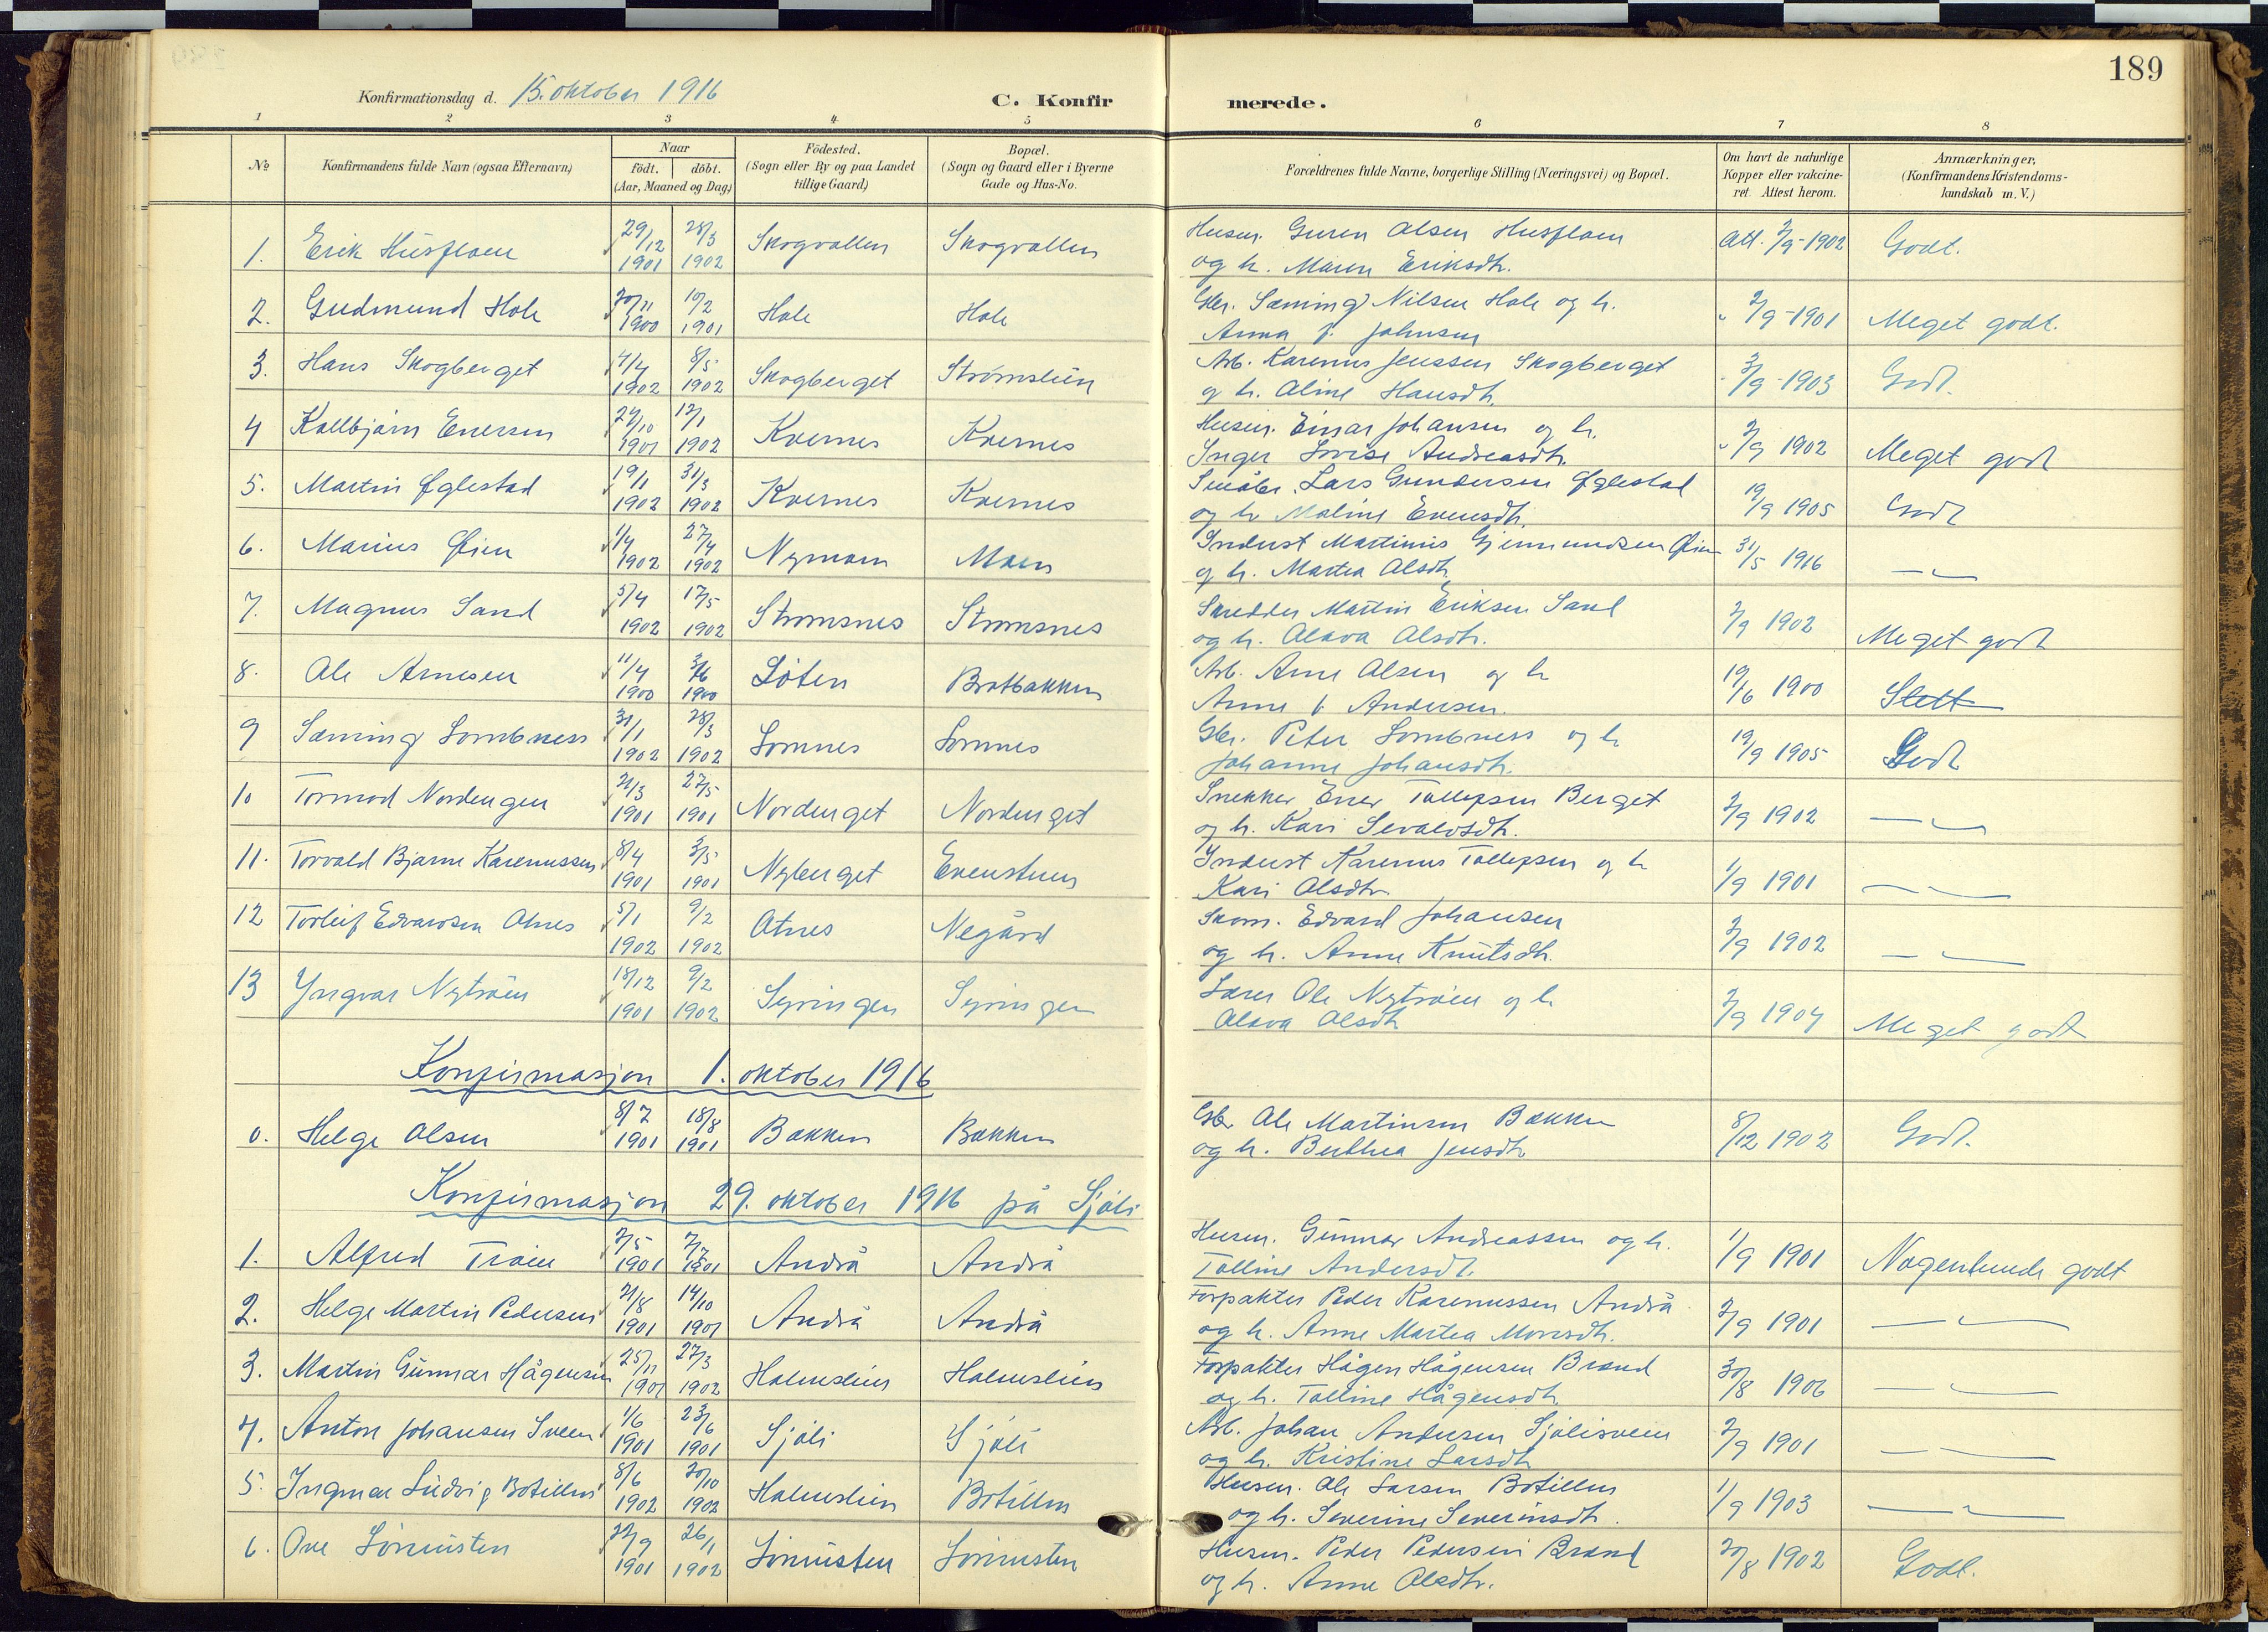 189
Konfirmationsdag d. 15. oktober 1916
C. Konfirmerede.
1 2 3 4 5 6 7 8
No Konfirmandens fulde Navn (ogsaa Efternavn) Naar født. døbt. (Aar, Maaned og Dag) Födested. (Sogn eller By og paa Landet tillige Gaard) Bopæl. (Sogn og Gaard eller i Byerne Gade og Hus-No. Forældrenes fulde Navne, borgerlige Stilling (Næringsvei) og Bopæl. Om havt de naturlige Kopper eller vakcineret. Attest herom. Anmærkninger, (Konfirmandens Kristendomskundskab m. V.)
1. Erik Husfloen 29/12 1901 28/3 1902 Skogvollen Skogvollen Husm. Guren Olsen Husfloen og h. Maren Eriksdtr. Att. 2/9-1902 Godt.
2. Gudmund Hole 30/11 1900 10/2 1901 Hole Hole Gbr. Sæming Nilsen Hole og h. Anna f. Johnsen " 2/9-1901 Meget godt.
3. Hans Skogberget 4/4 1902 8/5 1902 Skogberget Strømslien Arb. Karenus Jenssen Skogberget og h. Aline Hansdtr. 3/9-1903 Godt.
4 Kolbjørn Enersen 24/10 1901 12/1 1902 Kvernes Kvernes Husm. Einar Johansen og h. Inger Lovise Andreasdtr. " 2/9 1902 Meget godt
5. Martin Øglestad 19/1 1902 31/3 1902 Kvernes Kvernes Småbr. Lars Gundersen Øglestad og h. Maline Evensdtr. 19/9 1905 Godt
6. Marius Øien 11/4 1902 27/4 1902 Nymoen Moen Inderst Martinus Gjermundsen Øien og h. Martea Olsdtr. 31/5 1916 — " —
7. Magnus Sand 5/4 1902 17/5 1902 Strømsnes Strømsnes Skredder Martin Eriksen Sand og h. Olava Olsdtr. 2/9 1902 Meget godt
8. Ole Arnesen 11/4 1900 3/6 1900 Løten Brotbakken Arb. Arne Olsen og h Anne f. Andersen. 19/6 1900 Slett
9 Sæming Lombness 31/1 1902 28/3 1902 Lomnes Lomnes Gbr. Peter Lombness og h Johanne Johansdtr. 19/9 1905 Godt
10 Tormod Nordengen 21/3 1901 27/5 1901 Nordenget Nordenget Snekker Ener Tollefsen Berget og h. Kari Sevaldsdtr. 2/9 1902 — " —
11. Torvald Bjarne Karenussen 8/4 1901 3/5 1901 Nyberget Evenstuen Inderst Karenus Tollefsen og h Kari Olsdtr 1/9 1901 — " —
12 Torleif Edvardsen Atnes 5/1 1902 9/2 1902 Atnes Negård Skom. Edvard Johansen og h. Anne Knutsdtr. 2/9 1902 — " —
13 Yngvar Nytrøen 18/12 1901 9/2 1902 Syringen Syringen Lærer Ole Nytrøen og h. Olava Olsdtr 2/9 1904 Meget godt
Konfirmasjon 1. oktober 1916
0. Helge Olsen 8/7 1901 18/8 1901 Bakken Bakken Gbr. Ole Martinsen Bakken og h. Berthea Jensdtr 8/12 1902 Godt.
Konfirmasjon 29. oktober 1916 på Sjøli
1. Alfred Trøen 2/5 1901 7/7 1901 Andrå Andrå Husm. Gunnar Andreassen og h. Tolline Andersdtr. 1/9 1901 Nogenlunde godt
2. Helge Martin Pedersen 21/8 1901 14/10 1901 Andrå Andrå Forpakter Peder Karenussen Andrå og h. Anne Martea Monsdtr. 2/9 1901 — " —
3. Martin Gunnar Hågensen 25/11 1901 27/3 1902 Holmslien Holmslien Forpakter Hågen Hågensen Brænd og h. Tolline Hågensdtr. 30/8 1906 — " —
4. Anton Johansen Sveen 1/6 1901 23/6 1901 Sjøli Sjøli Arb. Johan Andersen Sjølisveen og h. Kristine Larsdtr 2/9 1901 — " —
5. Ingmar Ludvig Botillen 8/6 1902 20/10 1902 Holmslien Botillen Husm. Ole Larsen Botillen og h. Severine Severinsdtr. 1/9 1903 — " —
6. Ove Lønnsten 22/9 1901 26/1 1902 Lønnsten Lønnsten Husm. Peder Pedersen Brænd og h. Anne Olsdtr. 20/8 1902 Godt.